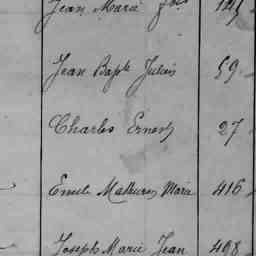 Jean Marie
Jean Bapte Julien 59
Charles Ernest 27
Emile Mathurin Marie 416
Joseph Marie Jean 498